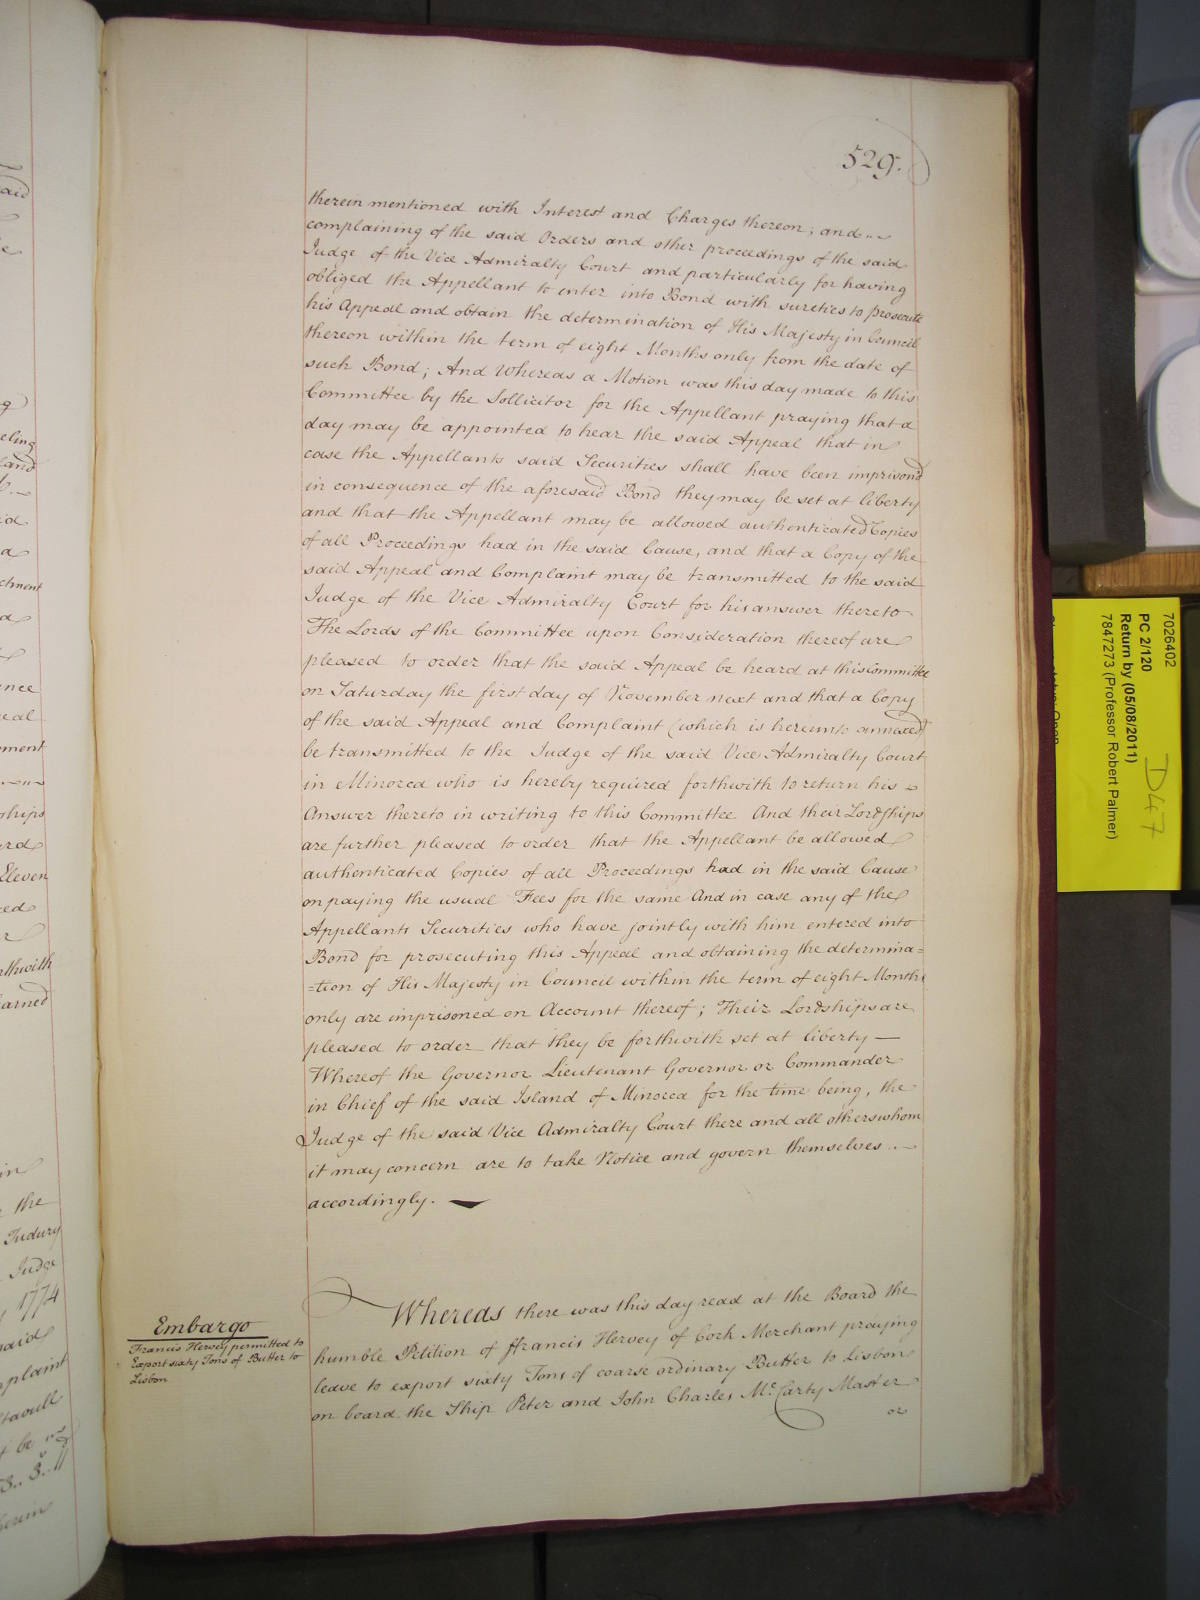 529.
therein mentioned with Interest and Charges thereon; and
complaining of the said Orders and other proceedings of the said
Judge of the Vice Admiralty Court and particularly for having
obliged the Appellant to enter into Bond with sureties to prosecute
his Appeal and obtain the determination of His Majesty in Council
thereon within the term of eight Months only from the date of
such Bond; And Whereas a Motion was this day made to this
Committee by the Sollicitor for the Appellant praying that a
day may be appointed to hear the said Appeal that in
case the Appellants said Securities shall have been imprisoned
in consequence of the aforesaid Bond they may be set at liberty
and that the Appellant may be allowed authenticated Copies
of all Proceedings had in the said Cause, and that a Copy of the
said Appeal and Complaint may be transmitted to the said
Judge of the Vice Admiralty Court for his answer thereto
The Lords of the Committee upon Consideration thereof are
pleased to order that the said Appeal be heard at this Committee
on Saturday the first day of November next and that a Copy
of the said Appeal and Complaint (which is hereunto annexed)
be transmitted to the Judge of the said Vice Admiralty Court
in Minorca who is hereby required forthwith to return his
Answer thereto in writing to this Committee And their Lordships
are further pleased to order that the Appellant be allowed
authenticated Copies of all Proceedings had in the said Cause
on paying the usual Fees for the same And in case any of the
Appellants Securities who have jointly with him entered into
Bond for prosecuting this Appeal and obtaining the determina=
=tion of His Majesty in Council within the term of eight Months
only are imprisoned on Account thereof; Their Lordships are
pleased to order that they be forthwith set at liberty —
Whereof the Governor Lieutenant Governor or Commander
in Chief of the said Island of Minorca for the time being, the
Judge of the said Vice Admiralty Court there and all others whom
it may concern are to take Notice and govern themselves
accordingly.
Embargo
Francis Hervey permitted to
Export sixty Tons of Butter to
Lisbon
Whereas there was this day read at the Board the
humble Petition of ffrancis Hervey of Cork Merchant praying
leave to export sixty Tons of coarse ordinary Butter to Lisbon
on board the Ship Peter and John Charles McCarty Master
or
7026402
PC 2/120
Return by (05/08/2011)
7847273 (Professor Robert Palmer)
D47